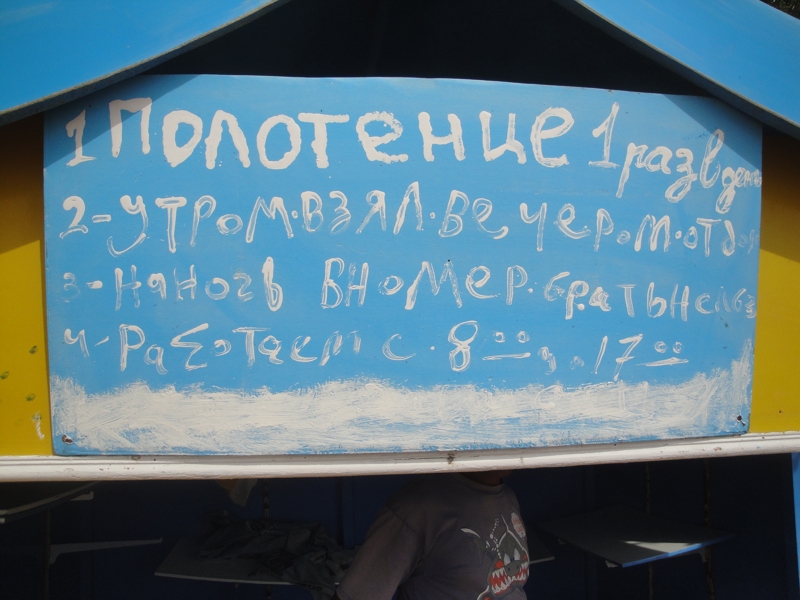 1 Полотенце 1 раз в день
2-Утром.взял.вечером.отдал
3-на ног в номер.братьнельз
4-Работает с.8 00 до.17 00